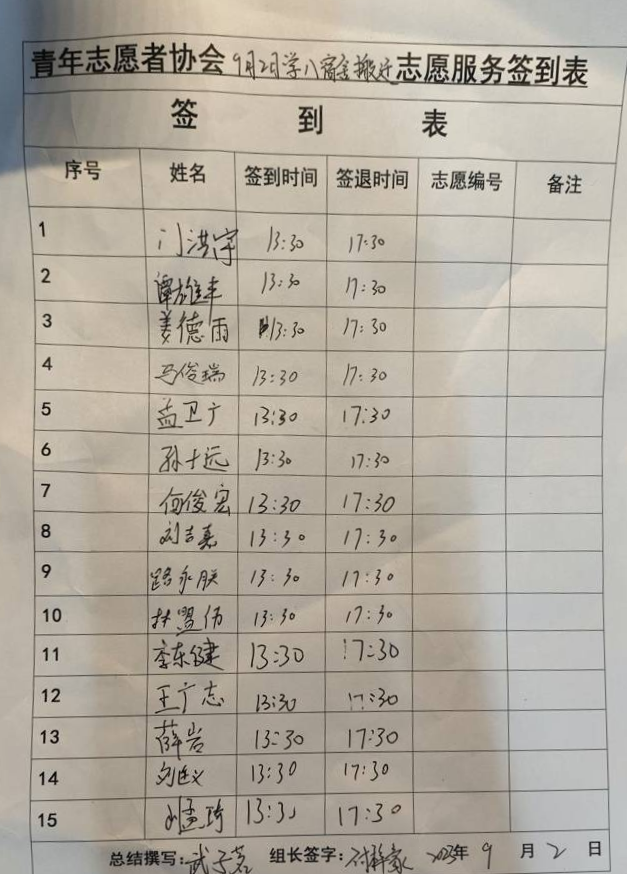 青年志愿者协会9月2日学八宿舍搬迁志愿服务签到表
签 到 表
序号 姓名 签到时间 签退时间 志愿编号 备注
1 门洪宇 13:30 17:30
2 谭雄丰 13:30 17:30
3 姜德雨 13:30 17:30
4 马俊瑞 13:30 17:30
5 孟卫广 13:30 17:30
6 孙士远 13:30 17:30
7 何俊宏 13:30 17:30
8 刘吉嘉 13:30 17:30
9 路永朕 13:30 17:30
10 13:30 17:30
11 李东健 13:30 17:30
12 王广志 13:30 17:30
13 薛岩 13:30 17:30
14 13:30 17:30
15 刘孟琦 13:30 17:30
总结撰写:武子茗 组长签字: 2023年 9 月 2 日